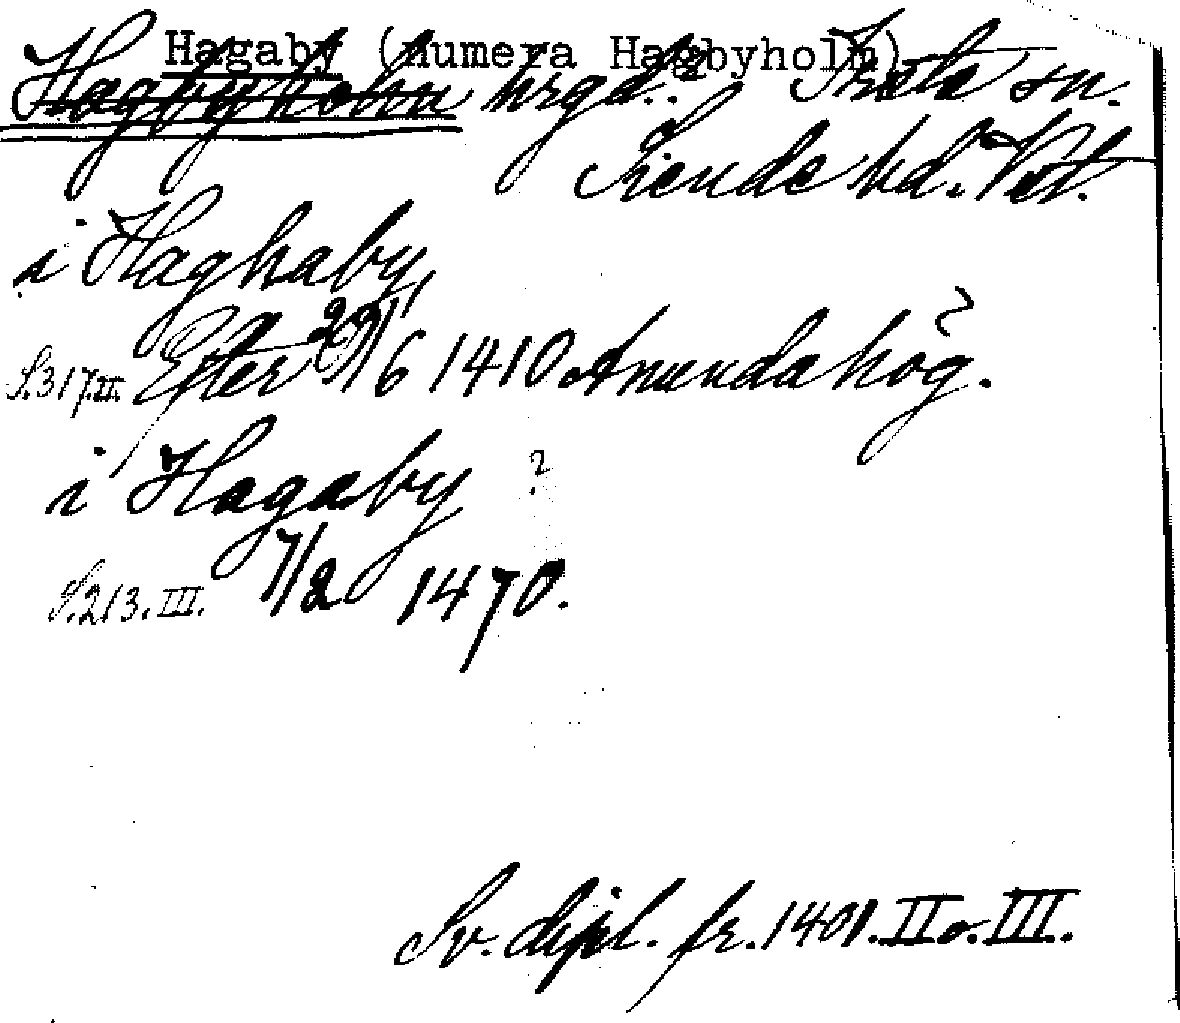 Hagaby (numera Hagbyholm)
Hagbyholm hrgd.? Irsta sn.
Siende hd. Vst.
i Haghaby
S. 317. II. Efter 29/6 1410 Anundahög. ?
i Hagaby ?
S. 213. III. 7/2 1470.
Sv. dipl. fr. 1401. II o. III.